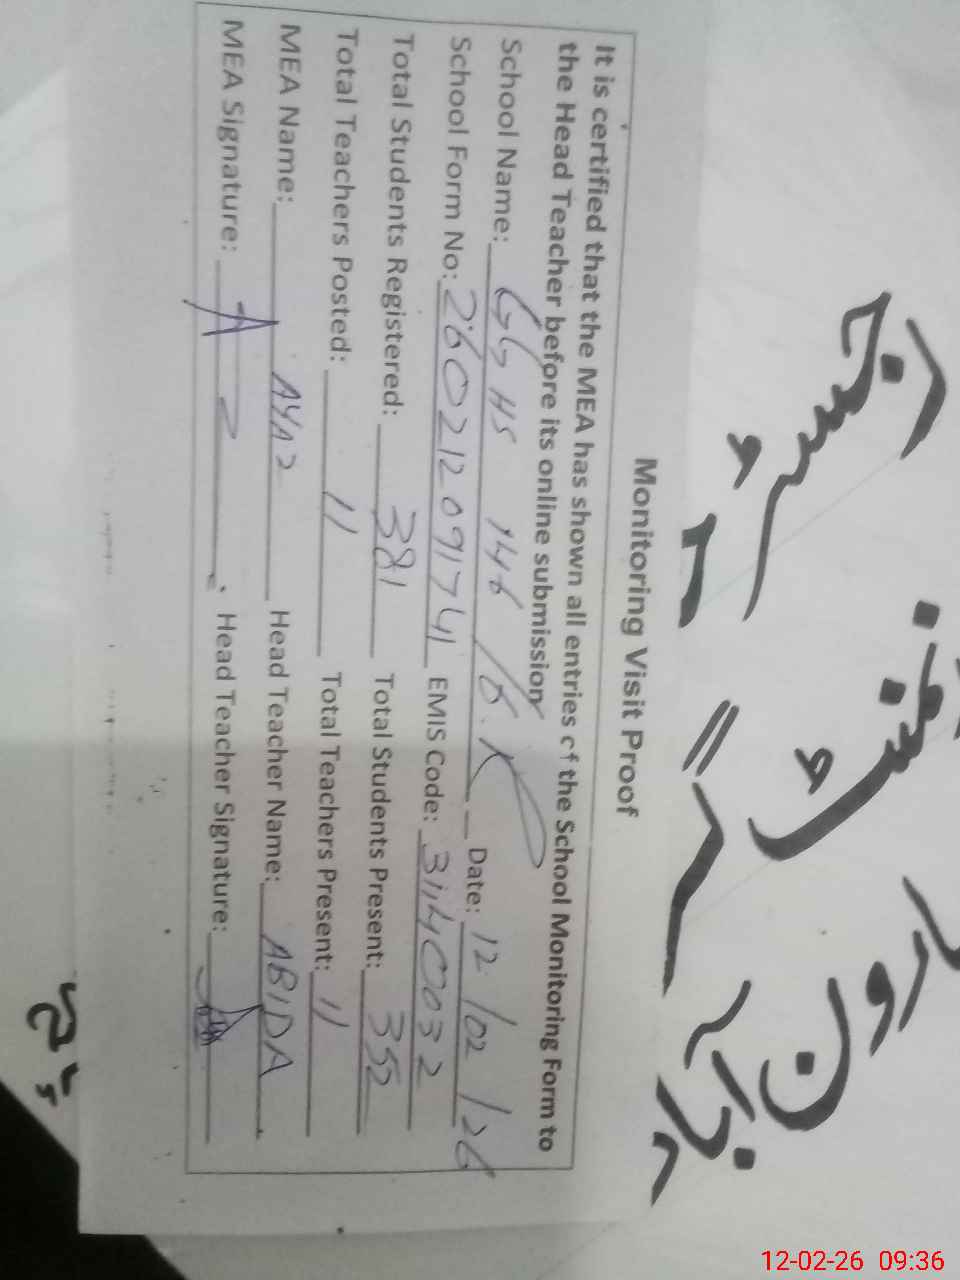 رجسٹر
ہارون آباد
Monitoring Visit Proof
It is certified that the MEA has shown all entries of the School Monitoring Form to
the Head Teacher before its online submission
School Name: GGHS 146/6.R Date: 12/02/26
School Form No: 260212091741 EMIS Code: 31140032
Total Students Registered: 381 Total Students Present: 352
Total Teachers Posted: 11 Total Teachers Present: 11
MEA Name: AYAZ Head Teacher Name: ABIDA
MEA Signature: Head Teacher Signature:
12-02-26 09:36